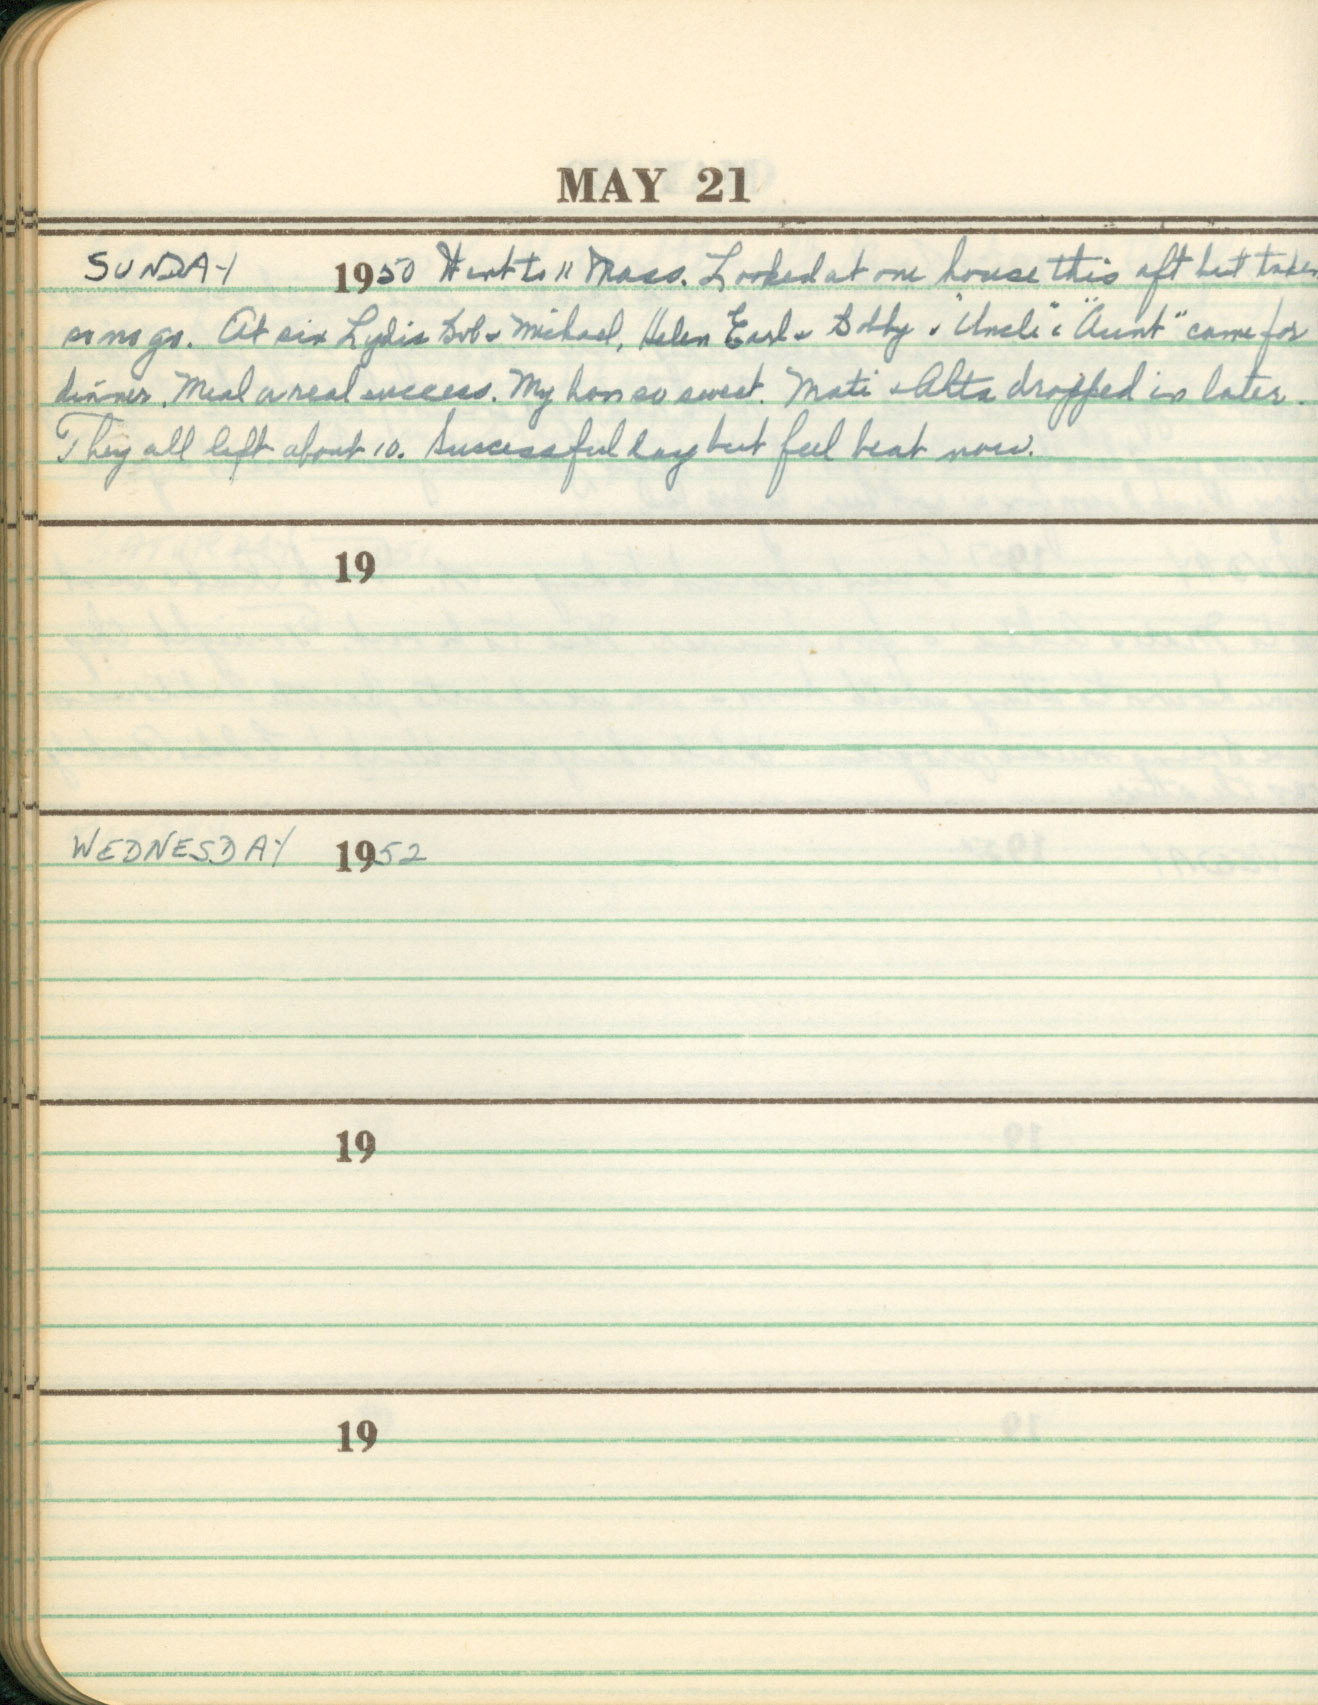 MAY 21
SUNDAY 1950 Went to 11 Mass. Looked at one house this aft but taken
so no go. At six Lydia Bob & Michael, Helen Earl & Bobby & "Uncle" & "Aunt" came for
dinner. Meal a real success. My hon so sweet. Mati & Alta dropped in later.
They all left about 10. Successful day but feel beat now.
19
WEDNESDAY 1952
19
19